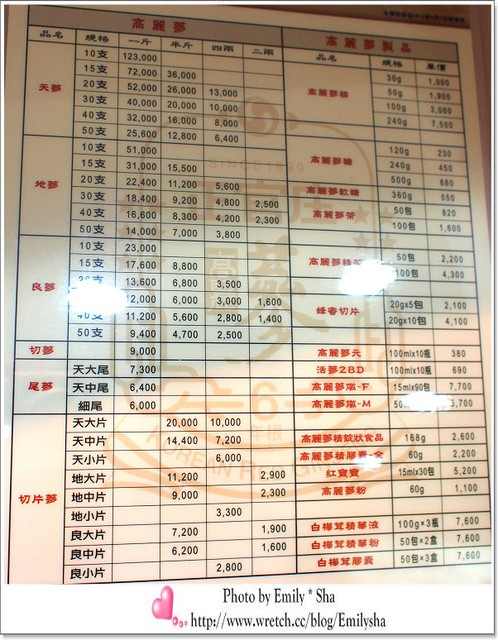 高麗蔘
品名 規格 一斤 半斤 四兩 二兩
天蔘
10支 123,000
15支 72,000 36,000
20支 52,000 26,000 13,000
30支 40,000 20,000 10,000
40支 32,000 16,000 8,000
50支 25,600 12,800 6,400
地蔘
10支 51,000
15支 31,000 15,500
20支 22,400 11,200 5,600
30支 18,400 9,200 4,800 2,500
40支 16,600 8,300 4,200 2,300
50支 14,000 7,000 3,800
良蔘
10支 23,000
15支 17,600 8,800
13,600 6,800 3,500
12,000 6,000 3,000 1,600
40支 11,200 5,600 2,800 1,400
50支 9,400 4,700 2,500
切蔘 9,000
尾蔘
天大尾 7,300
天中尾 6,400
細尾 6,000
切片蔘
天大片 20,000 10,000
天中片 14,400 7,200
天小片 6,000
地大片 11,200 2,900
地中片 9,000 2,300
地小片 3,300
良大片 7,200 1,900
良中片 6,200 1,600
良小片 2,800
高麗蔘製品
品名 規格 單價
高麗蔘精
30g 1,000
50g 1,900
100g 3,000
240g 7,500
高麗蔘糖
120g 230
240g 450
500g 880
高麗蔘軟糖 360g 550
高麗蔘茶
50包 820
100包 1,600
高麗蔘精茶
50包 2,200
100包 4,300
蜂蜜切片
20gx5包 2,100
20gx10包 4,100
高麗蔘元 100mlx10瓶 380
活蔘28D 100mlx10包 690
高麗蔘燉-F 15mlx90包 7,700
高麗蔘燉-M 5,700
高麗蔘精錠狀食品 168g 2,600
高麗蔘精膠囊-金 60g 2,200
紅寶寶 15mlx30包 5,200
高麗蔘粉 60g 1,100
白樺茸精華液 100g×3瓶 7,600
白樺茸精華粉 50包×2盒 7,600
白樺茸膠囊 50包×3盒 7,600
SINCE1899
6
年根
KOREAN
Photo by Emily * Sha
http://www.wretch.cc/blog/Emilysha